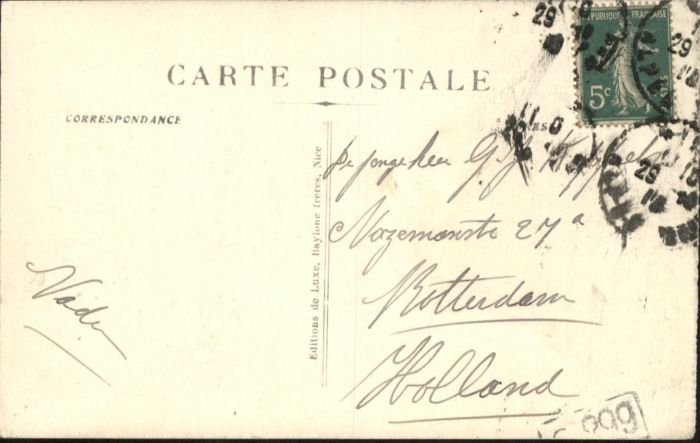 CARTE POSTALE
CORRESPONDANCE
RÉPUBLIQUE FRANÇAISE
5c
POSTES
29
29
29
De jongeheer G. J.
Nozemanstr 27a
Rotterdam
Holland
Vader
Editions de Luxe, Baylone frères, Nice